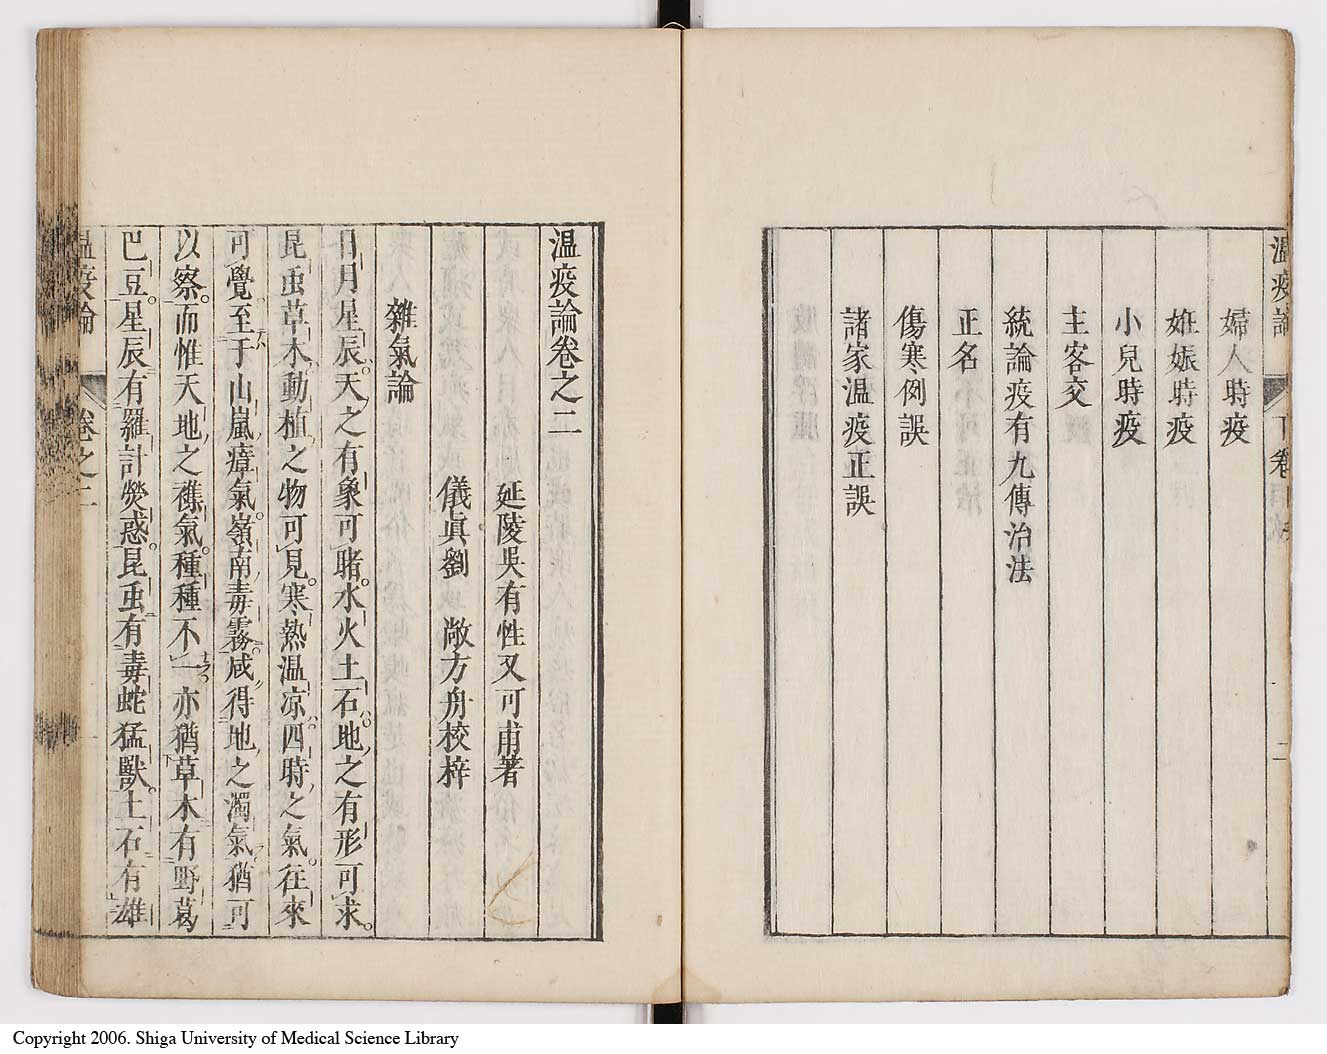 温疫論 下卷目次 二
婦人時疫
姙娠時疫
小兒時疫
主客交
統論疫有九傳治法
正名
傷寒例誤
諸家温疫正誤
温疫論卷之二
延陵吳有性又可甫著
儀眞劉 敞方舟校梓
雜氣論
日月星辰。天之有象可睹。水火土石。地之有形可求。
昆虫草木。動植之物可見。寒熱温凉。四時之氣。往來
可覺至于山嵐瘴氣。嶺南毒霧。咸得地之濁氣猶可
以察。而惟天地之襍氣。種種不一。亦猶草木有野葛
巴豆。星辰有羅計熒惑。昆虫有毒蛇猛獸。土石有雄
温疫論 卷之二 一
Copyright 2006. Shiga University of Medical Science Library